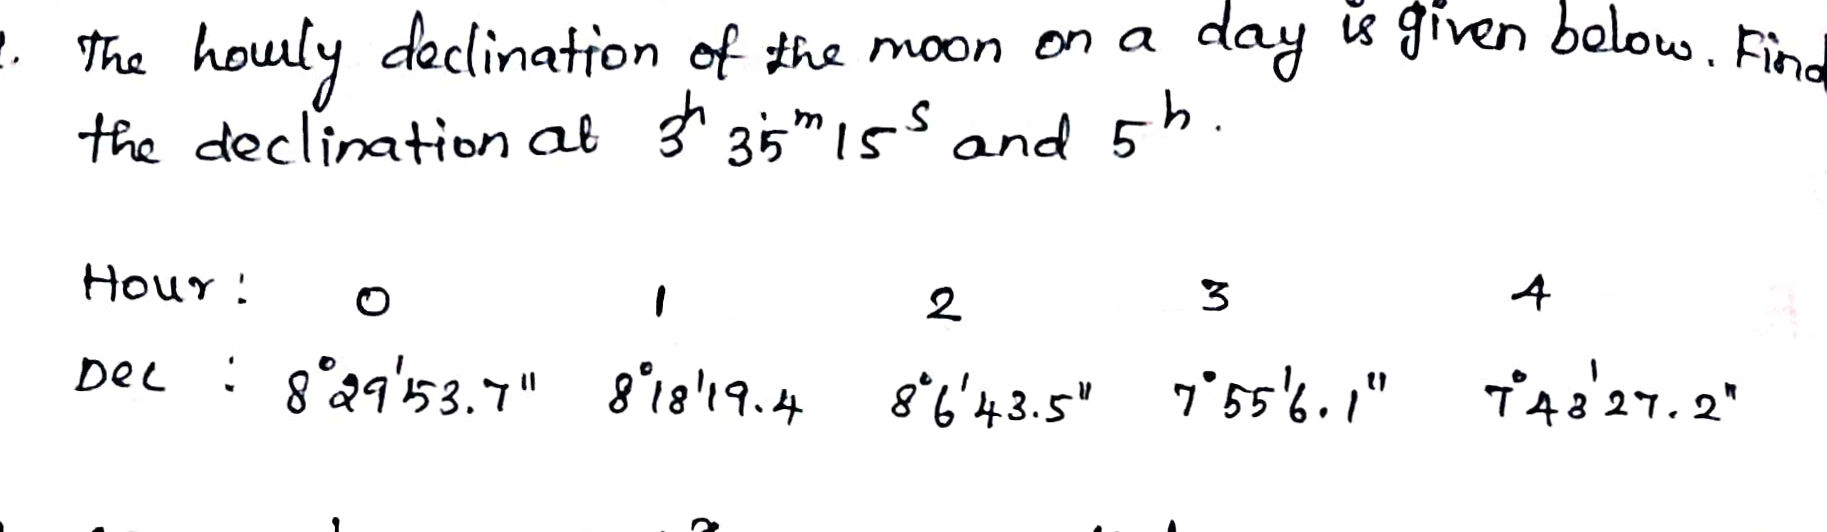 . The hourly declination of the moon on a day is given below. Find
the declination at 3ʰ 35ᵐ 15ˢ and 5ʰ.
Hour : 0 1 2 3 4
Dec : 8°29'53.7" 8°18'19.4 8°6'43.5" 7°55'6.1" 7°43'27.2"